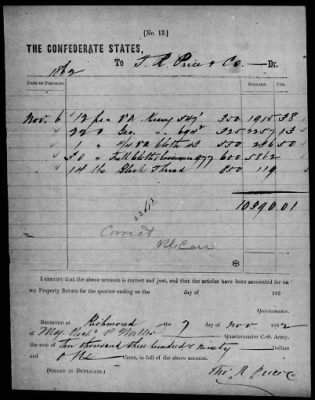 [No. 12.]
THE CONFEDERATE STATES,
To T. R. Price & Co. — Dr.
1862
DATE OF PURCHASE.
Nov. 6 12 pcs Va 547 350 1915 38
22 Geo. 694 325 2257 13
1 " Va Cloth 43 550 236 50
30 " Full Cloth 977 600 5862
14 lbs Black Thread 850 119
10390.01
Correct
I CERTIFY that the above account is correct and just, and that the articles have been accounted for on
my Property Return for the quarter ending on the day of 186
Quartermaster.
RECEIVED at Richmond the 7 day of Nov 1862
of Maj. Rich. P. Waller Quartermaster C.S. Army,
the sum of ten thousand three hundred & ninety Dollars
and one Cents, in full of the above account.
(SIGNED IN DUPLICATE.) Tho. R. Price & Co